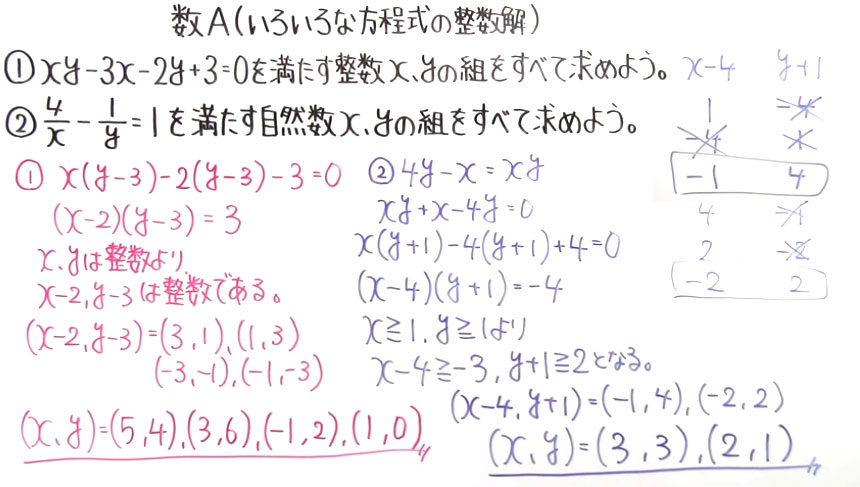 数A(いろいろな方程式の整数解)
① xy-3x-2y+3=0を満たす整数x、yの組をすべて求めよう。
② 4/x - 1/y = 1を満たす自然数x、yの組をすべて求めよう。
① x(y-3)-2(y-3)-3=0
(x-2)(y-3)=3
x、yは整数より、
x-2,y-3は整数である。
(x-2,y-3)=(3,1),(1,3)
(-3,-1),(-1,-3)
(x、y)=(5,4),(3,6),(-1,2),(1,0)
② 4y-x=xy
xy+x-4y=0
x(y+1)-4(y+1)+4=0
(x-4)(y+1)=-4
x≧1,y≧1より
x-4≧-3,y+1≧2となる。
(x-4,y+1)=(-1,4),(-2,2)
(x、y)=(3,3),(2,1)
x-4 y+1
1 -4
-4 1
-1 4
4 -1
2 -2
-2 2